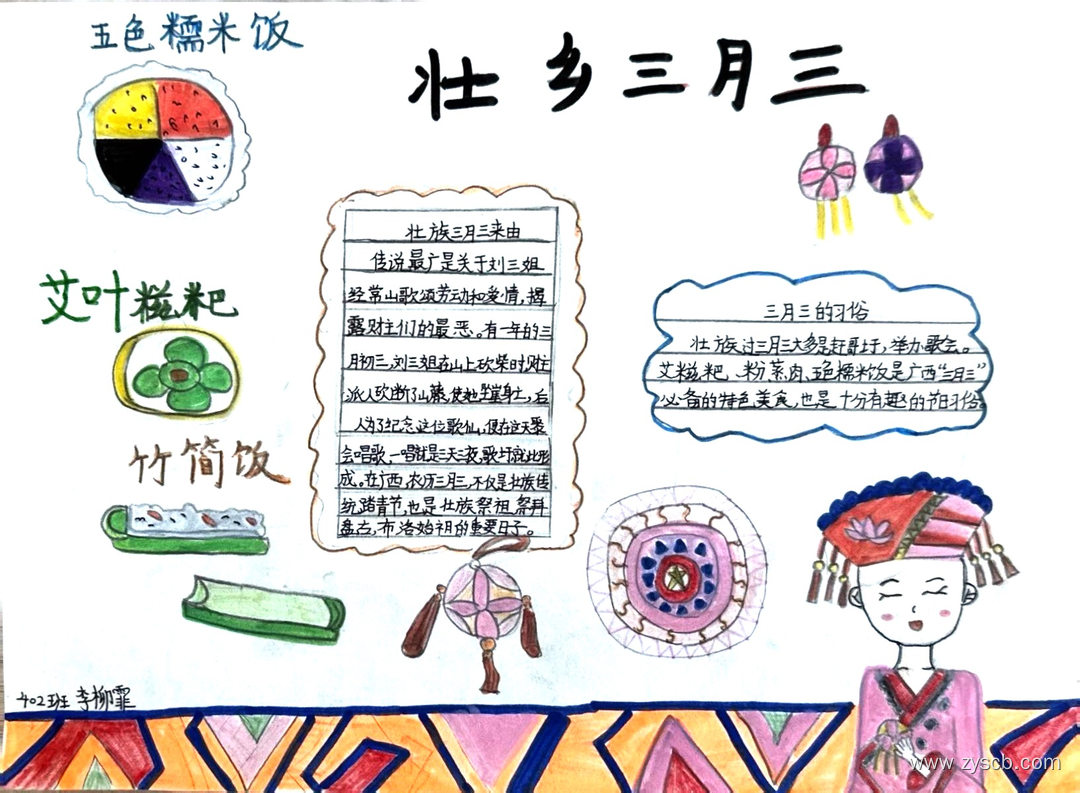 五色糯米饭
壮乡三月三
壮族三月三来由
传说最广是关于刘三姐
经常山歌颂劳动和爱情,揭
露财主们的最恶。有一年的三
月初三,刘三姐在山上砍柴时,财主
派人砍断了山藤,使她坠崖身亡,后
人为了纪念这位歌仙,便在这天聚
会唱歌,一唱就是三天三夜,歌圩就此形
成。在广西,农历三月三,不仅是壮族传
统踏青节,也是壮族祭祖,祭拜
盘古,布洛始祖的重要日子。
艾叶糍粑
三月三的习俗
壮族过三月三大多是赶哥圩,举办歌会。
艾糍粑、粉蒸肉、五色糯米饭是广西“三月三”
必备的特色美食,也是十分有趣的节日习俗。
竹简饭
402班 李柳霏
www.zyscb.com